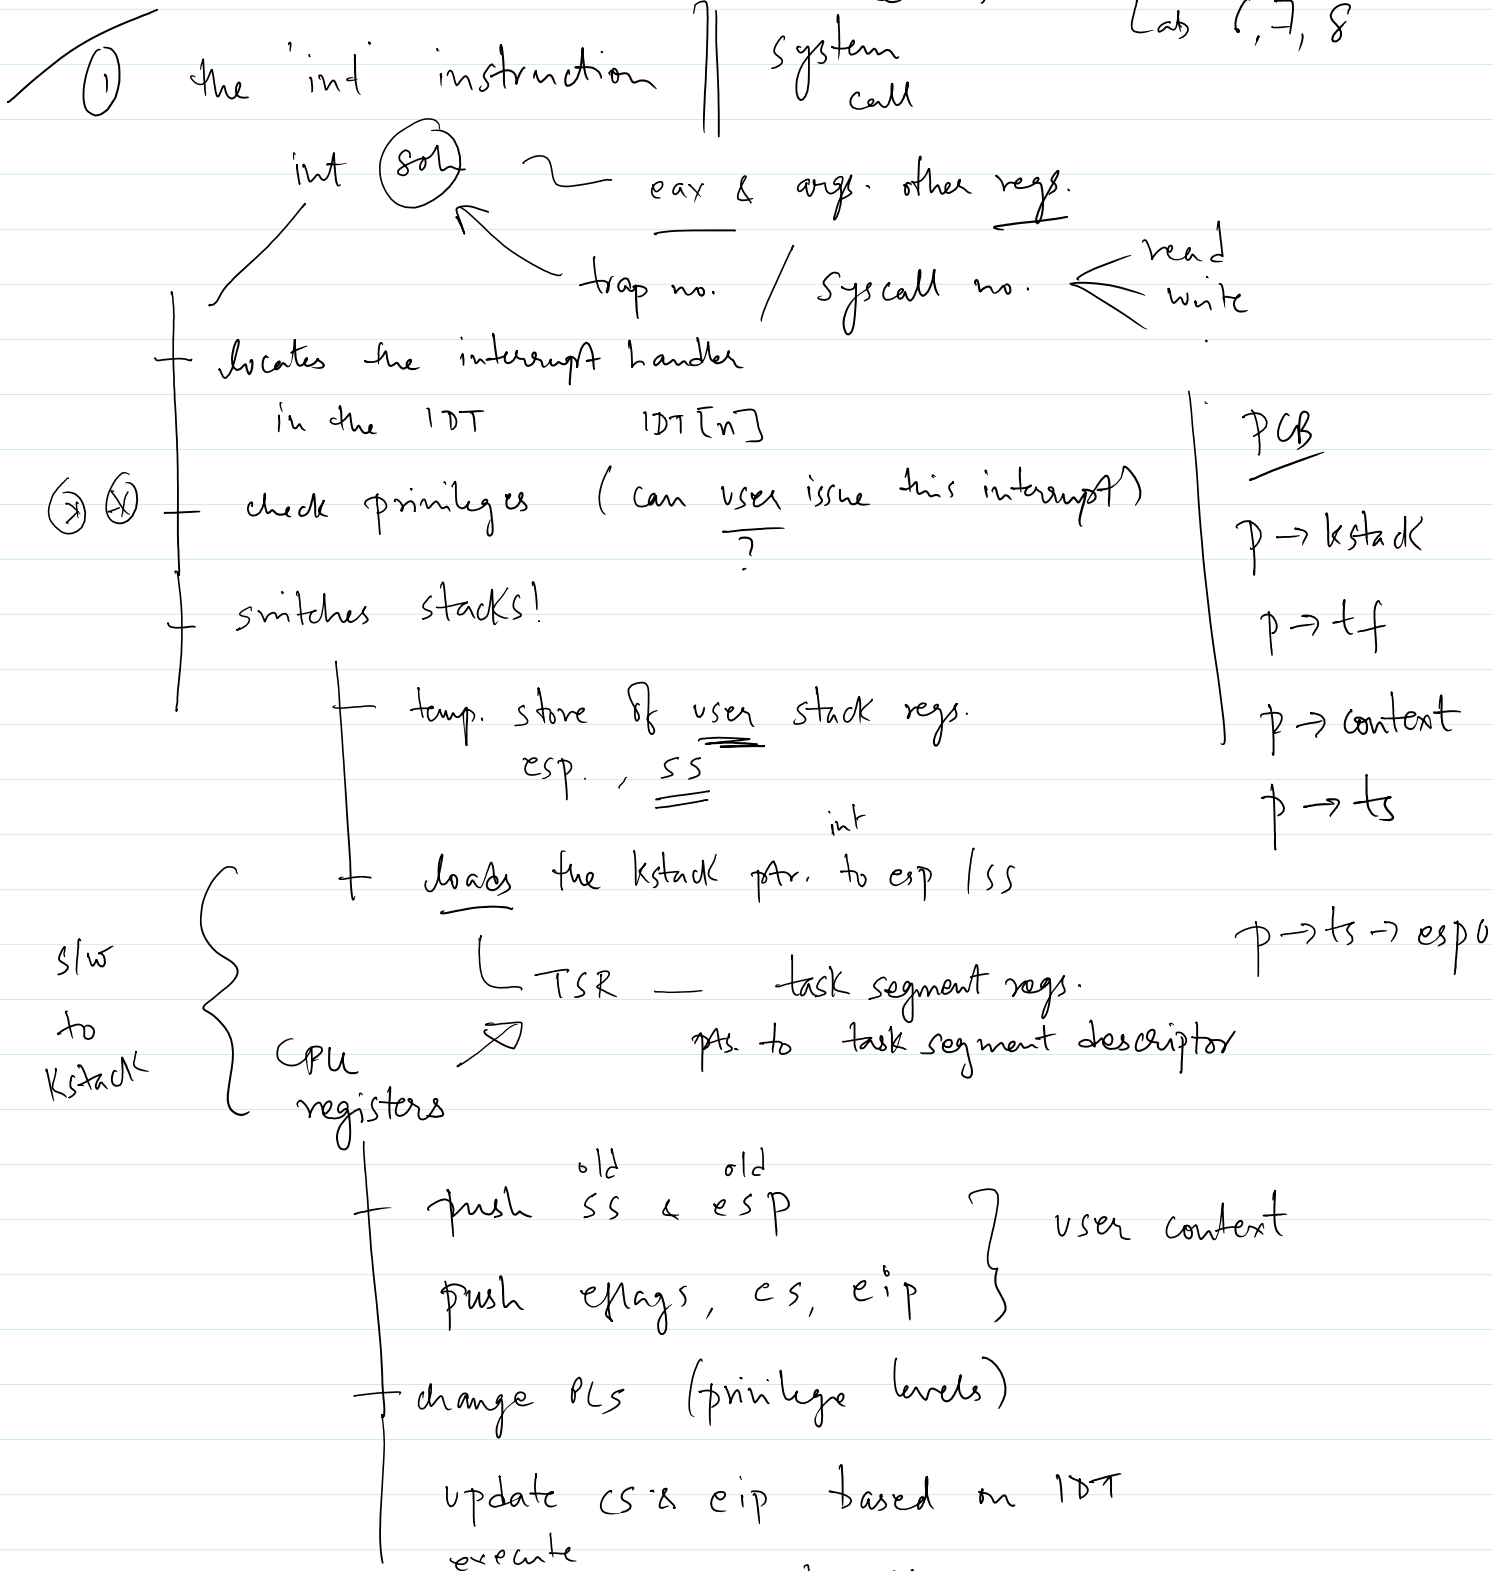 Lab 6, 7, 8
① the 'int' instruction
system
call
int 80h
eax & args. other regs.
trap no. / syscall no.
read
write
locates the interrupt handler
in the IDT IDT[n]
check privileges (can user issue this interrupt)
?
switches stacks!
temp. store of user stack regs.
esp. , ss
int
loads the kstack ptr. to esp / ss
TSR — task segment regs.
pts. to task segment descriptor
s/w
to
kstack
CPU
registers
old old
push ss & esp
push eflags, cs, eip
user context
change PLs (privilege levels)
update cs & eip based on IDT
execute
PCB
p → kstack
p → tf
p → context
p → ts
p → ts → esp0